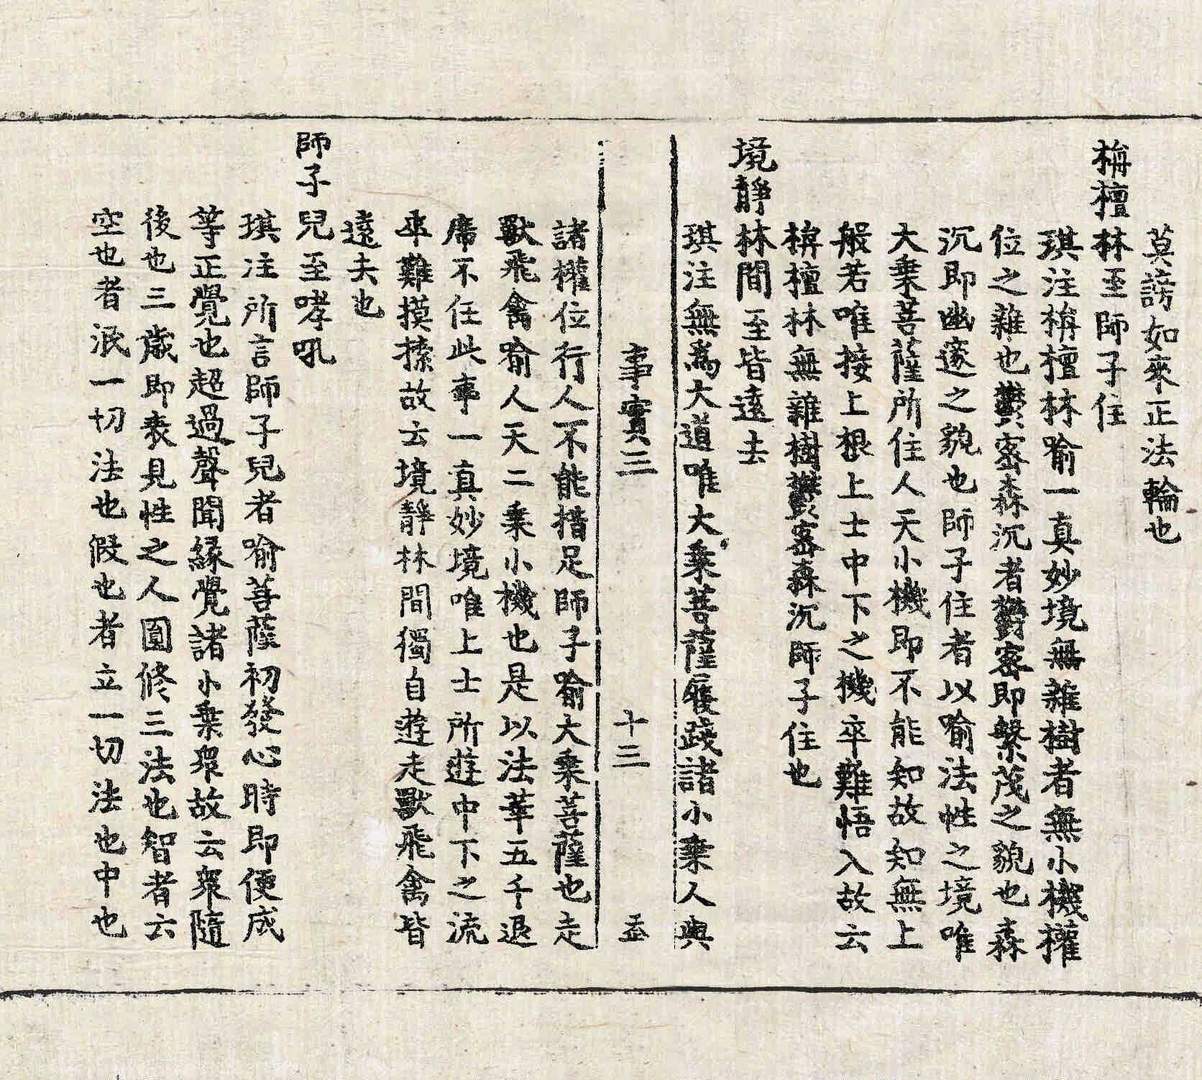 莫謗如來正法輪也
栴檀林至師子住
琪注栴檀林喻一真妙境無雜樹者無小機權
位之雜也欝密森沉者欝密即繁茂之貌也森
沉即幽邃之貌也師子住者以喻法性之境唯
大乗菩薩所住人天小機即不能知故知無上
般若唯接上根上士中下之機卒難悟入故云
栴檀林無雜樹欝密森沉師子住也
境靜林間至皆遠去
琪注無爲大道唯大乗菩薩履踐諸小乗人與
事實三　十三　盃
諸權位行人不能措足師子喻大乗菩薩也走
獸飛禽喻人天二乗小機也是以法華五千退
席不任此事一真妙境唯上士所遊中下之流
卒難摸揉故云境靜林間獨自遊走獸飛禽皆
遠去也
師子兒至哮吼
琪注所言師子兒者喻菩薩初發心時即便成
等正覺也超過聲聞緣覺諸小乗衆故云衆隨
後也三歲即表見性之人圓修三法也智者云
空也者泯一切法也假也者立一切法也中也